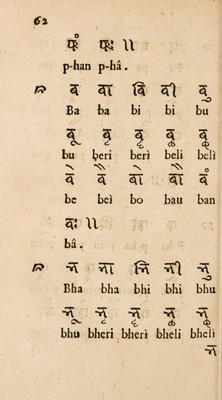 62
फं फः ॥
p-han p-hâ.
ब बा बि बी बु
Ba ba bi bi bu
बू बृ बॄ बॢ बॣ
bu beri berì beli belì
बे बै बो बौ बं
be beì bo bau ban
बः ॥
bâ.
भ भा भि भी भु
Bha bha bhi bhi bhu
भू भृ भॄ भॢ भॣ
bhu bheri bherì bheli bheli
भ